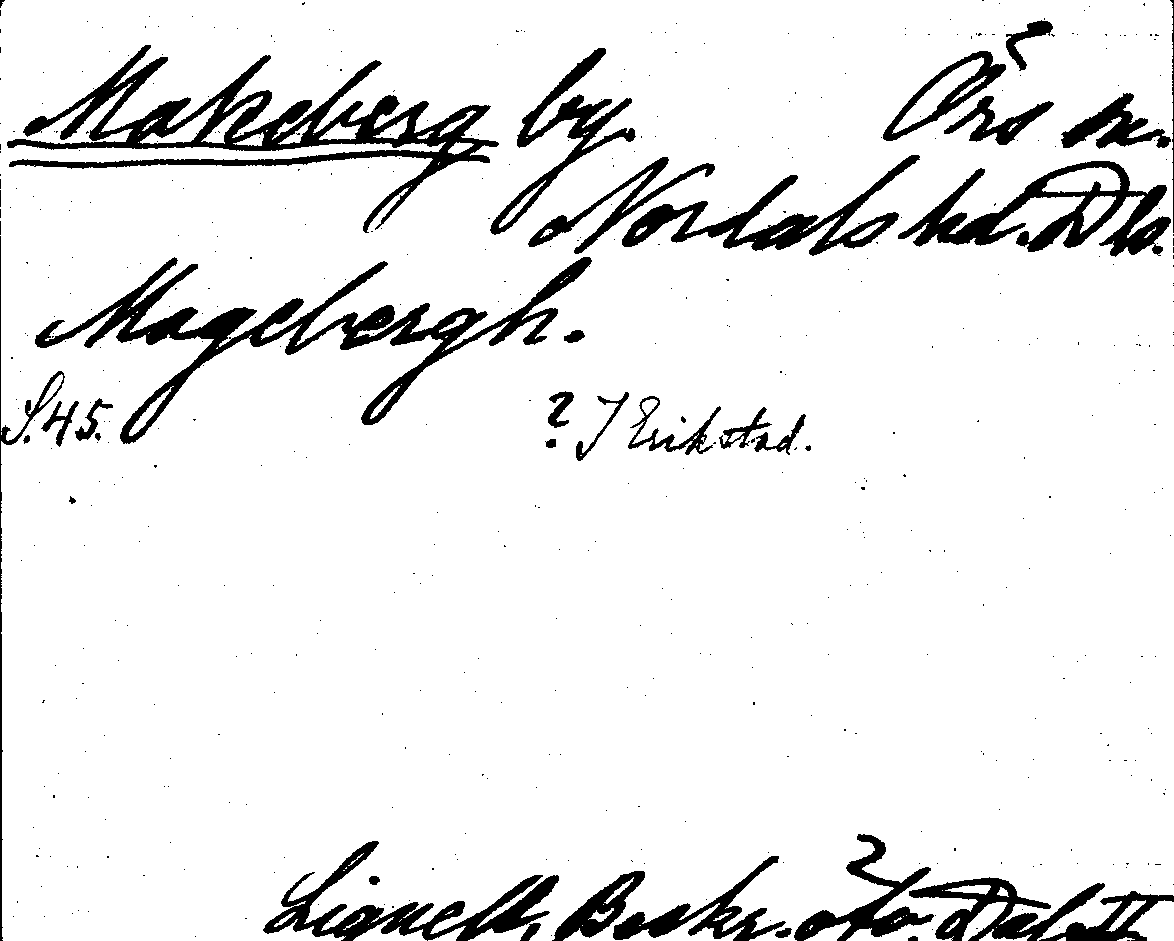 Makeberg by. Örs sn.
Nordals hd. Dls.
Magebergh.
S. 45. ? I Erikstad.
Lignell, Beskr. ö. Dal II